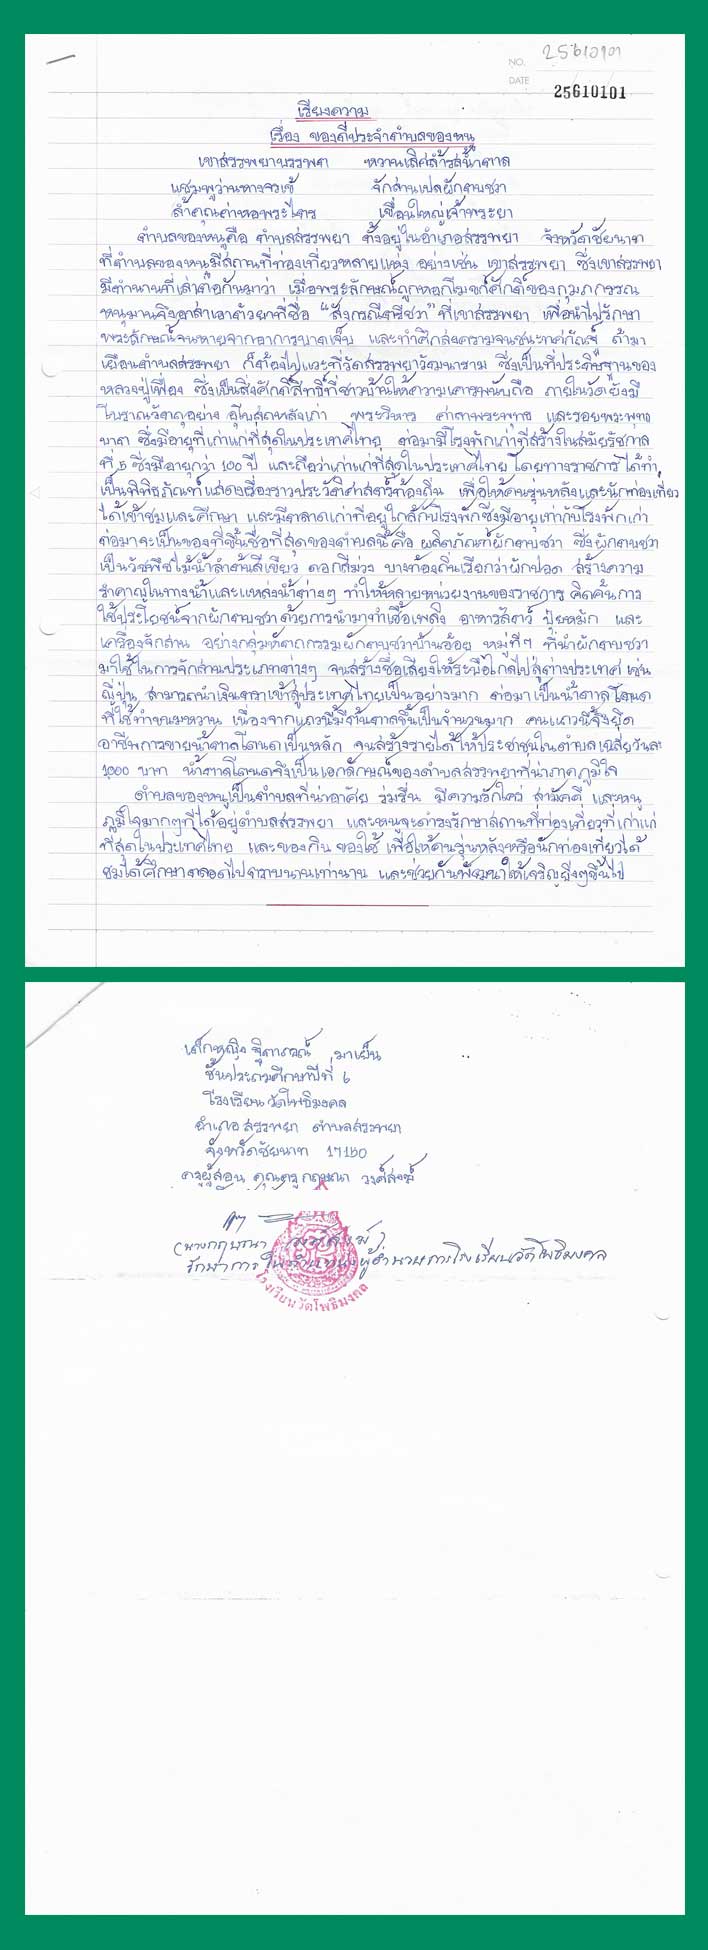 NO. 25610101
DATE 25610101
เรียงความ
เรื่อง ของดีประจำตำบลของหนู
เขาสรรพยาบรรพต หวานเลิศล้ำรสน้ำตาล
แชมพูว่านหางจรเข้ จักสานเปลผักตบชวา
ล้ำคุณค่าหอพระไตร เขื่อนใหญ่เจ้าพระยา
ตำบลของหนูคือ ตำบลสรรพยา ตั้งอยู่ในอำเภอสรรพยา จังหวัดชัยนาท
ที่ตำบลของหนูมีสถานที่ท่องเที่ยวหลายแห่ง อย่างเช่น เขาสรรพยา ซึ่งเขาสรรพยา
มีตำนานที่เล่าต่อกันมาว่า เมื่อพระลักษณ์ถูกหอกโมขศักดิ์ของกุมภกรรณ
หนุมานจึงอาสาเอาตัวยาที่ชื่อ "สังกรณีตรีชวา" ที่เขาสรรพยา เพื่อนำไปรักษา
พระลักษณ์จนหายจากอาการบาดเจ็บ และทำศึกสงครามจนชนะทศกัณฐ์ ถ้ามา
เยือนตำบลสรรพยา ก็ต้องไปแวะที่วัดสรรพยาวัฒนาราม ซึ่งเป็นที่ประดิษฐานของ
หลวงปู่เฟื่อง ซึ่งเป็นสิ่งศักดิ์สิทธิ์ที่ชาวบ้านให้ความเคารพนับถือ ภายในวัดยังมี
โบราณวัตถุอย่าง อุโบสถหลังเก่า พระวิหาร ศาลาพระพุทธ และรอยพระพุทธ
บาท ซึ่งมีอายุที่เก่าแก่ที่สุดในประเทศไทย ต่อมามีโรงพักเก่าที่สร้างในสมัยรัชกาล
ที่ 5 ซึ่งมีอายุกว่า 100 ปี และถือว่าเก่าแก่ที่สุดในประเทศไทย โดยทางราชการได้ทำ
เป็นพิพิธภัณฑ์แสดงเรื่องราวประวัติศาสตร์ท้องถิ่น เพื่อให้คนรุ่นหลังและนักท่องเที่ยว
ได้เข้าชมและศึกษา และมีตลาดเก่าที่อยู่ใกล้กับโรงพักซึ่งมีอายุเท่ากับโรงพักเก่า
ต่อมาจะเป็นของที่ขึ้นชื่อที่สุดของตำบลนี้คือ ผลิตภัณฑ์ผักตบชวา ซึ่งผักตบชวา
เป็นวัชพืชไม้น้ำลำต้นสีเขียว ดอกสีม่วง บางท้องถิ่นเรียกว่าผักปอด สร้างความ
รำคาญในทางน้ำและแหล่งน้ำต่างๆ ทำให้หลายหน่วยงานของราชการ คิดค้นการ
ใช้ประโยชน์จากผักตบชวาด้วยการนำมาทำเชื้อเพลิง อาหารสัตว์ ปุ๋ยหมัก และ
เครื่องจักสาน อย่างกลุ่มหัตถกรรมผักตบชวาบ้านอ้อย หมู่ที่๙ ที่นำผักตบชวา
มาใช้ในการจักสานประเภทต่างๆ จนสร้างชื่อเสียงให้ระบือไกลไปสู่ต่างประเทศ เช่น
ญี่ปุ่น สามารถนำเงินตราเข้าสู่ประเทศไทยเป็นอย่างมาก ต่อมาเป็นน้ำตาลโตนด
ที่ใช้ทำขนมหวาน เนื่องจากแถวนี้มีต้นตาลขึ้นเป็นจำนวนมาก คนแถวนี้จึงยึด
อาชีพการขายน้ำตาลโตนดเป็นหลัก จนสร้างรายได้ให้ประชาชนในตำบลเฉลี่ยวันละ
1,000 บาท น้ำตาลโตนดจึงเป็นเอกลักษณ์ของตำบลสรรพยาที่น่าภาคภูมิใจ
ตำบลของหนูเป็นตำบลที่น่าอาศัย ร่มรื่น มีความรักใคร่ สามัคคี และหนู
ภูมิใจมากๆที่ได้อยู่ตำบลสรรพยา และหนูจะดำรงรักษาสถานที่ท่องเที่ยวที่เก่าแก่
ที่สุดในประเทศไทย และของกิน ของใช้ เพื่อให้คนรุ่นหลังหรือนักท่องเที่ยวได้
ชมได้ศึกษาตลอดไปตราบนานเท่านาน และช่วยกันพัฒนาให้เจริญยิ่งๆขึ้นไป
เด็กหญิง ฐิตาภรณ์ มาเย็น
ชั้นประถมศึกษาปีที่ 6
โรงเรียนวัดโพธิมงคล
อำเภอสรรพยา ตำบลสรรพยา
จังหวัดชัยนาท 17150
ครูผู้สอน คุณครู กฤษณา วงศ์สงฆ์
(นางกฤษณา วงศ์สงฆ์)
รักษาการในตำแหน่งผู้อำนวยการโรงเรียนวัดโพธิมงคล
โรงเรียนวัดโพธิมงคล